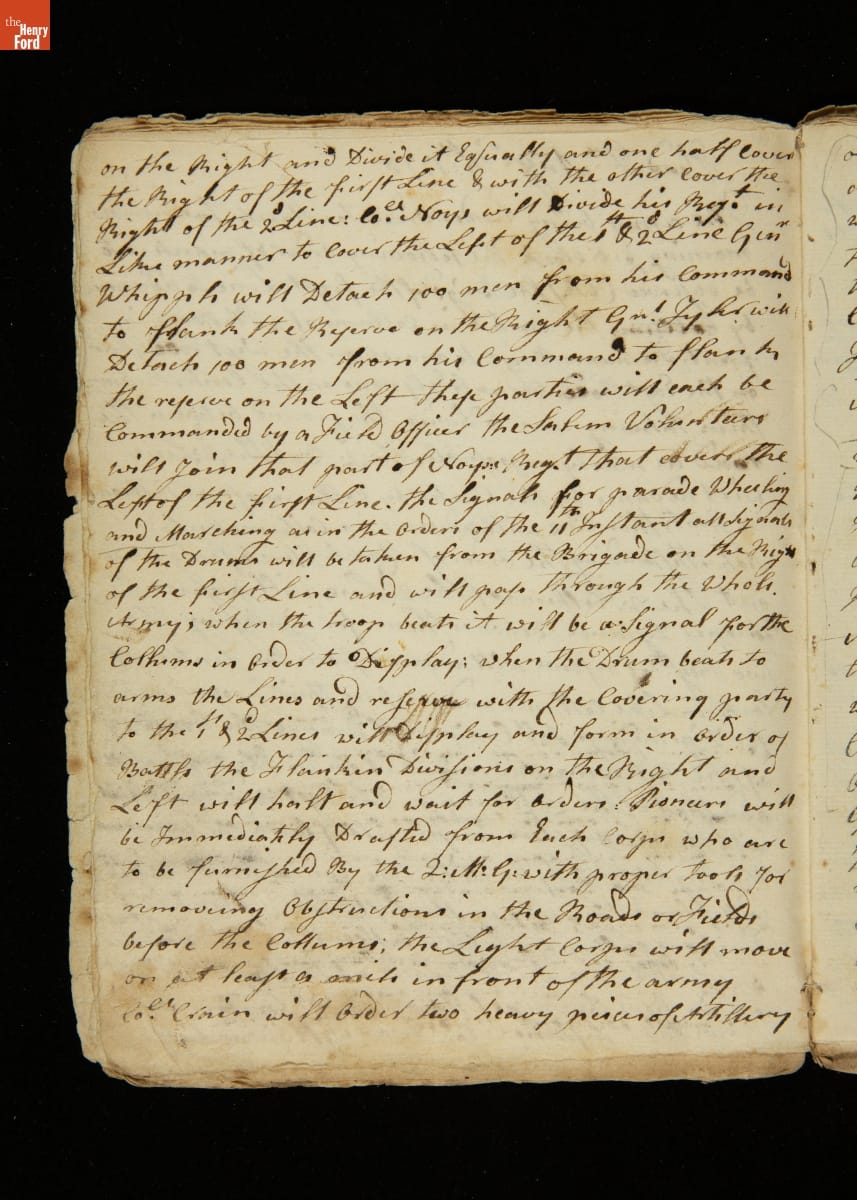 the
Henry
Ford
on the Right and Divide it Equally and one half Cover
the Right of the first Line & with the other Cover the
Right of the 2d Line: Col. Noys will Divide his Regt in
Like manner to Cover the Left of the 1st & 2d Line Genl
Whipple will Detach 100 men from his Command
to flank the Reserve on the Right Gnl. Tyler will
Detach 100 men from his Command to flank
the reserve on the Left these parties will each be
Commanded by a Field Officer the Salem Volunteers
will Join that part of Noyes Regt that covers the
Left of the first Line. the Signals for parade Wheeling
and Marching as in the orders of the 11th Instant all Signals
of the Drums will be taken from the Brigade on the Right
of the first Line and will pass through the Whole
Army; when the troop beats it will be a Signal for the
Collums in order to Display; when the Drum beats to
arms the Lines and reserve with the Covering party
to the 1st & 2d Lines will Display and form in order of
Battle the Flankin Divisions on the Right and
Left will halt and wait for orders: Pioneers will
be Immediatly Drafted from Each Corps who are
to be furnished By the Q: M: G: with proper tools for
removeing Obstructions in the Roads or Fields
before the Collums; the Light Corps will move
on at least a mile in front of the army
Col. Crain will order two heavy peices of Artillery